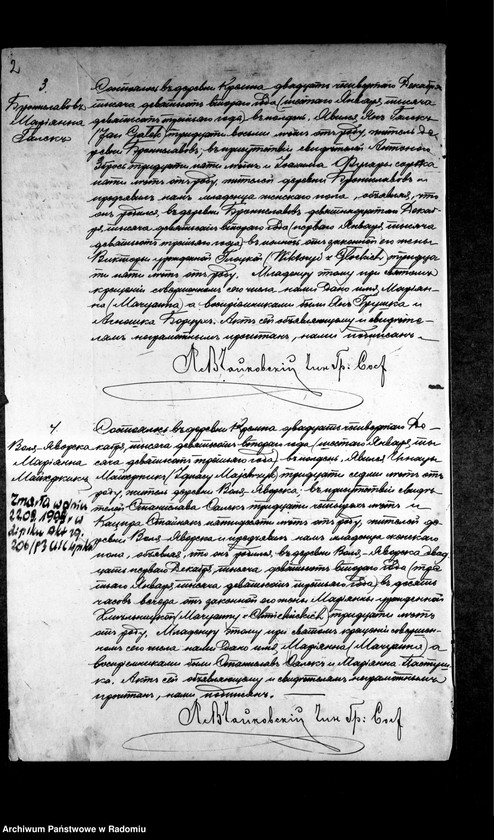 2
3.
Брониславовъ
Маріянна
Галекъ
Состоялось въ деревни Кремпа двадцать четвертаго Декабря
тысяча девятьсотъ втораго года (шестаго Января, тысяча
девятьсотъ третьяго года) въ полдень. Явился Янъ Галекъ
(Jan Gałek) тридцати восьми лѣтъ отъ роду, житель де-
ревни Брониславовъ; въ присутствіи свидѣтелей Антонія
тридцати пяти лѣтъ и сорока
пяти лѣтъ отъ роду, жителей деревни Брониславовъ и
предъявилъ намъ младенца женскаго пола, объявляя, что
онъ родился въ деревни Брониславовъ девятнадцатаго Декаб-
ря, тысяча девятьсотъ втораго года (перваго Января, тысяча
девятьсотъ третьяго года) въ полночь отъ законной его жены
Викторіи урожденной тридца-
ти пяти лѣтъ отъ роду. Младенцу этому при святомъ
крещеніи совершенномъ сего числа нами дано имя, Маріян-
на (Maryanna) а воспріемниками были Янъ Грушка и
Агнешка Актъ сей объявляющему и свидѣте-
лямъ неграмотнымъ прочтенъ, нами подписанъ.
Чин. Гр: Сост
4
Воля-Яворска
Маріянна
Маіхерчикъ
Zmarła w dniu
22.03. w
Lipsku Akt zg.
206/83 USC Lipsko
Состоялось въ деревни Кремпа двадцать четвертаго Де-
кабря, тысяча девятьсотъ втораго года (шестаго Января, ты-
сяча девятьсотъ третьяго года) въ полдень. Явился Игнацы
Маіхерчикъ (Ignacy) тридцати седми лѣтъ отъ
роду, житель деревни Воля-Яворска; въ присутствіи свидѣ-
телей Станислава тридцати лѣтъ и
лѣтъ отъ роду, жителей де-
ревни Воля-Яворска и предъявилъ намъ младенца женскаго
пола, объявляя, что онъ родился въ деревни Воля-Яворска двад-
цать перваго Декабря, тысяча девятьсотъ втораго года (тре-
тьяго Января, тысяча девятьсотъ третьяго года) въ десять
часовъ вечера отъ законной его жены Маріянны урожденной
тридцати лѣтъ
отъ роду. Младенцу этому при святомъ крещеніи совершен-
номъ сего числа нами дано имя, Маріянна (Maryanna) а
воспріемниками были Станиславъ и Маріянна Пастуш-
ка. Актъ сей объявляющему и свидѣтелямъ неграмотнымъ
прочтенъ, нами подписанъ.
Чин. Гр: Сост
Archiwum Państwowe w Radomiu